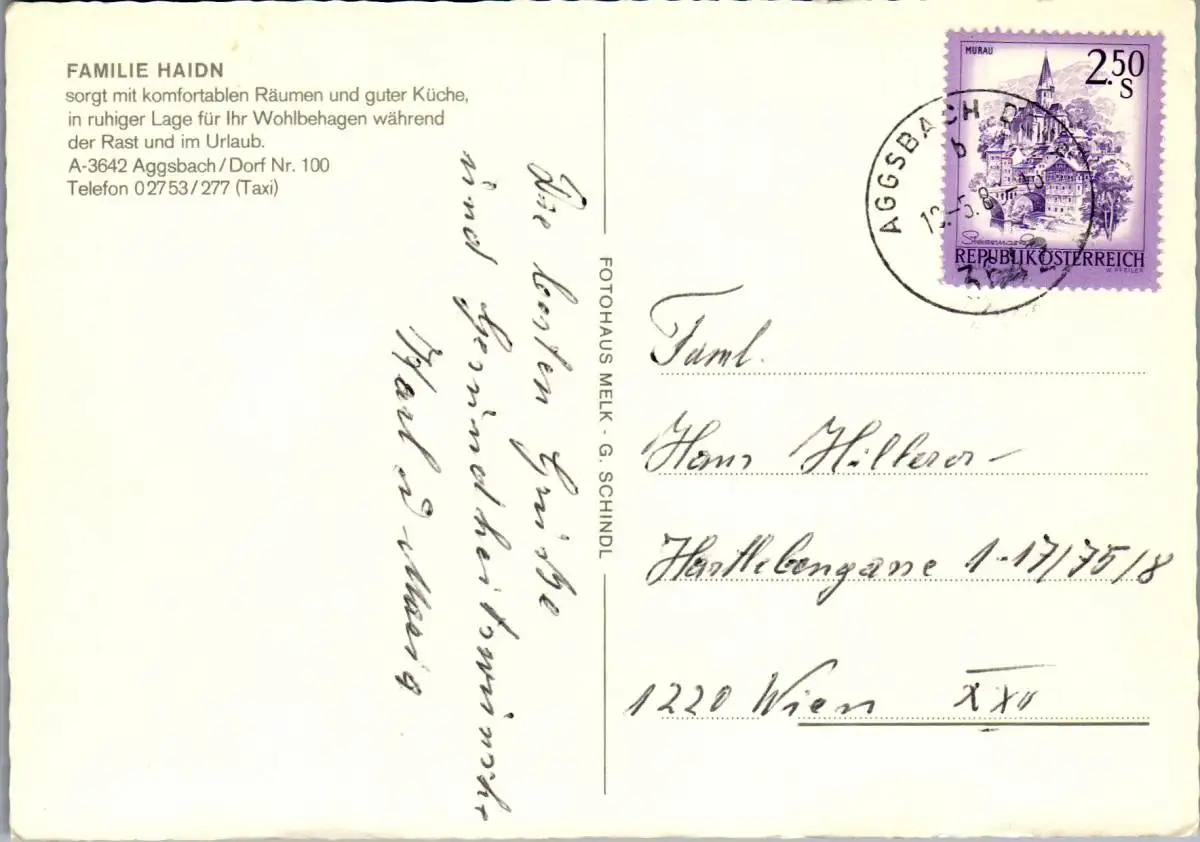 FAMILIE HAIDN
sorgt mit komfortablen Räumen und guter Küche,
in ruhiger Lage für Ihr Wohlbehagen während
der Rast und im Urlaub.
A-3642 Aggsbach/Dorf Nr. 100
Telefon 02753/277 (Taxi)
Die besten Grüße
und Gesundheitswünsche
Karl u Maria
FOTOHAUS MELK - G. SCHINDL
MURAU
2.50
S
REPUBLIK ÖSTERREICH
W. PFEILER
AGGSBACH D
b
Faml.
Hans Hillerer
Hartlebengasse 1-17/75/8
1220 Wien